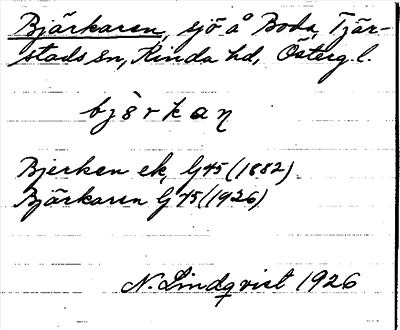 Bjärkaren, sjö å Boda, Tjär-
stads sn, Kinda hd, Österg. l.
bjèrkaŋ
Bjerken ek, G45 (1882)
Bjärkaren G45 (1926)
N. Lindqvist 1926